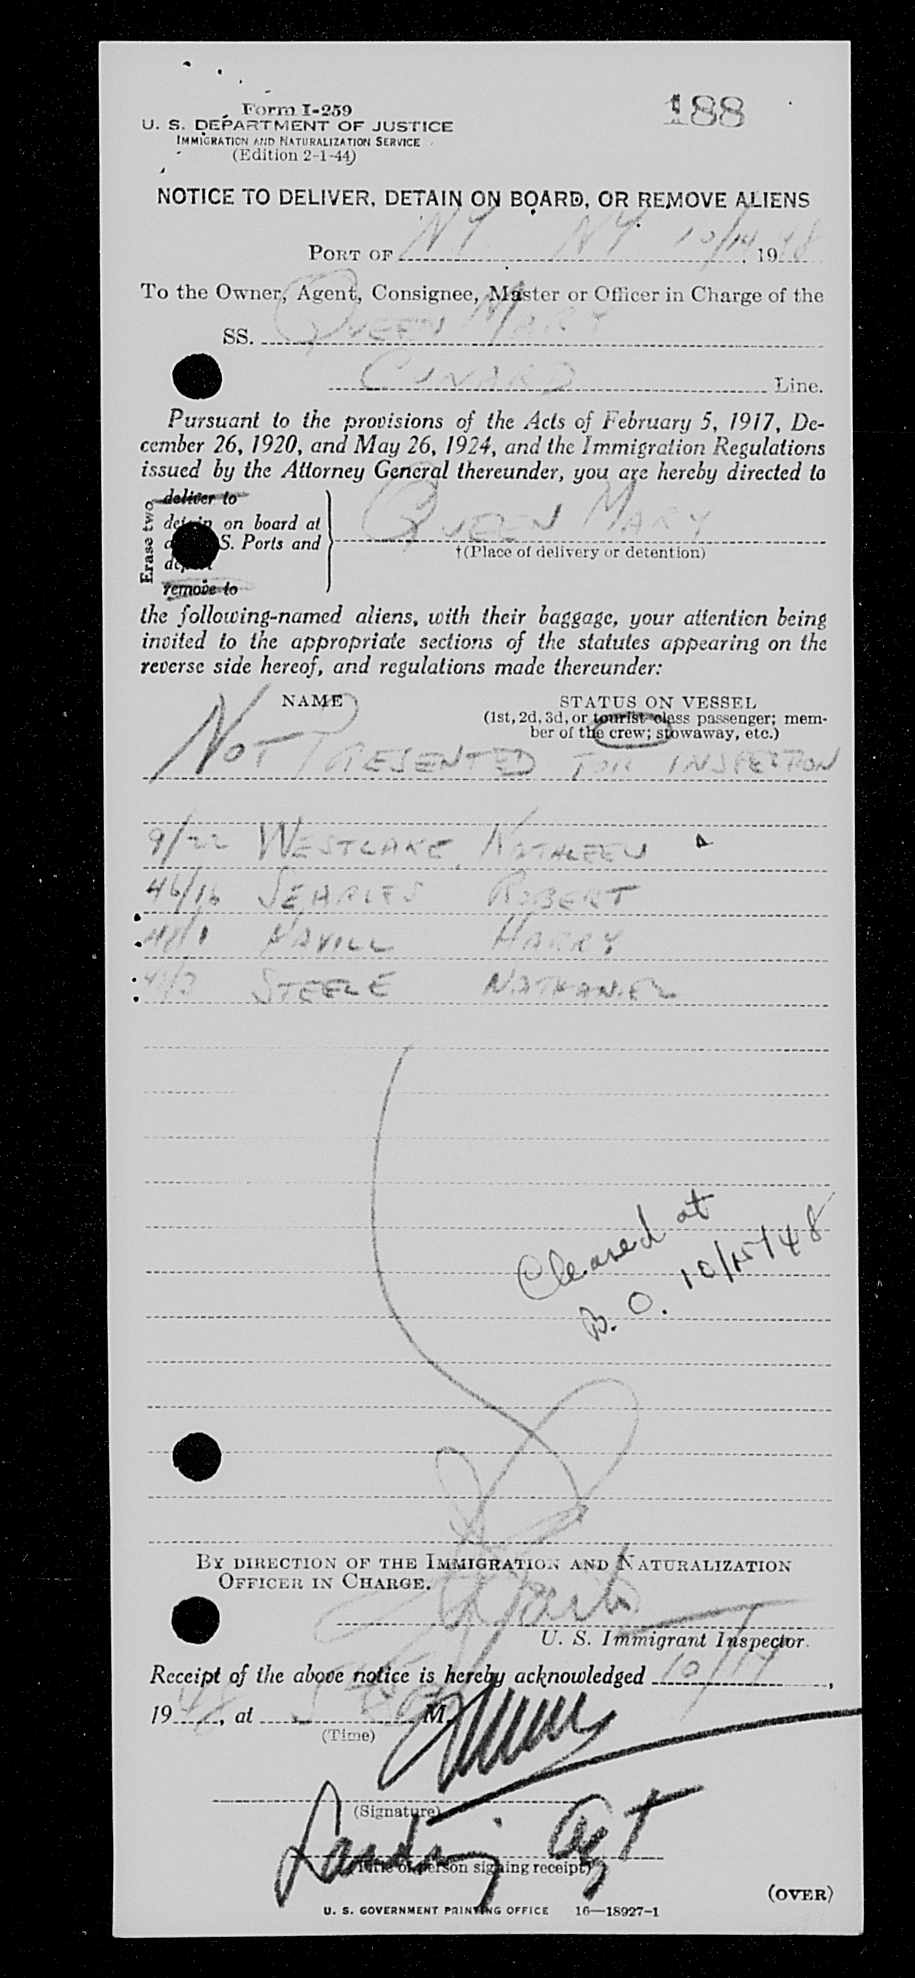 188
Form I-259
U. S. DEPARTMENT OF JUSTICE
IMMIGRATION AND NATURALIZATION SERVICE
(Edition 2-1-44)
NOTICE TO DELIVER, DETAIN ON BOARD, OR REMOVE ALIENS
PORT OF NY NY 10/14, 1948
To the Owner, Agent, Consignee, Master or Officer in Charge of the
SS. QUEEN MARY
CUNARD Line.
Pursuant to the provisions of the Acts of February 5, 1917, De-
cember 26, 1920, and May 26, 1924, and the Immigration Regulations
issued by the Attorney General thereunder, you are hereby directed to
Erase two
deliver to
detain on board at
S. Ports and
remove to
QUEEN MARY
†(Place of delivery or detention)
the following-named aliens, with their baggage, your attention being
invited to the appropriate sections of the statutes appearing on the
reverse side hereof, and regulations made thereunder:
NAME STATUS ON VESSEL
(1st, 2d, 3d, or tourist class passenger; mem-
ber of the crew; stowaway, etc.)
NOT PRESENTED FOR INSPECTION
9/22 WESTLAKE, KATHLEEN
46/16 SEARLES ROBERT
HAVILL HARRY
STEELE NATHANIEL
Cleared at
B. O. 10/15/48
BY DIRECTION OF THE IMMIGRATION AND NATURALIZATION
OFFICER IN CHARGE.
U. S. Immigrant Inspector.
Receipt of the above notice is hereby acknowledged 10/14,
1948, at M.
(Time)
(Signature)
Landing Agt
(Title of person signing receipt)
(OVER)
U. S. GOVERNMENT PRINTING OFFICE 16—18927-1